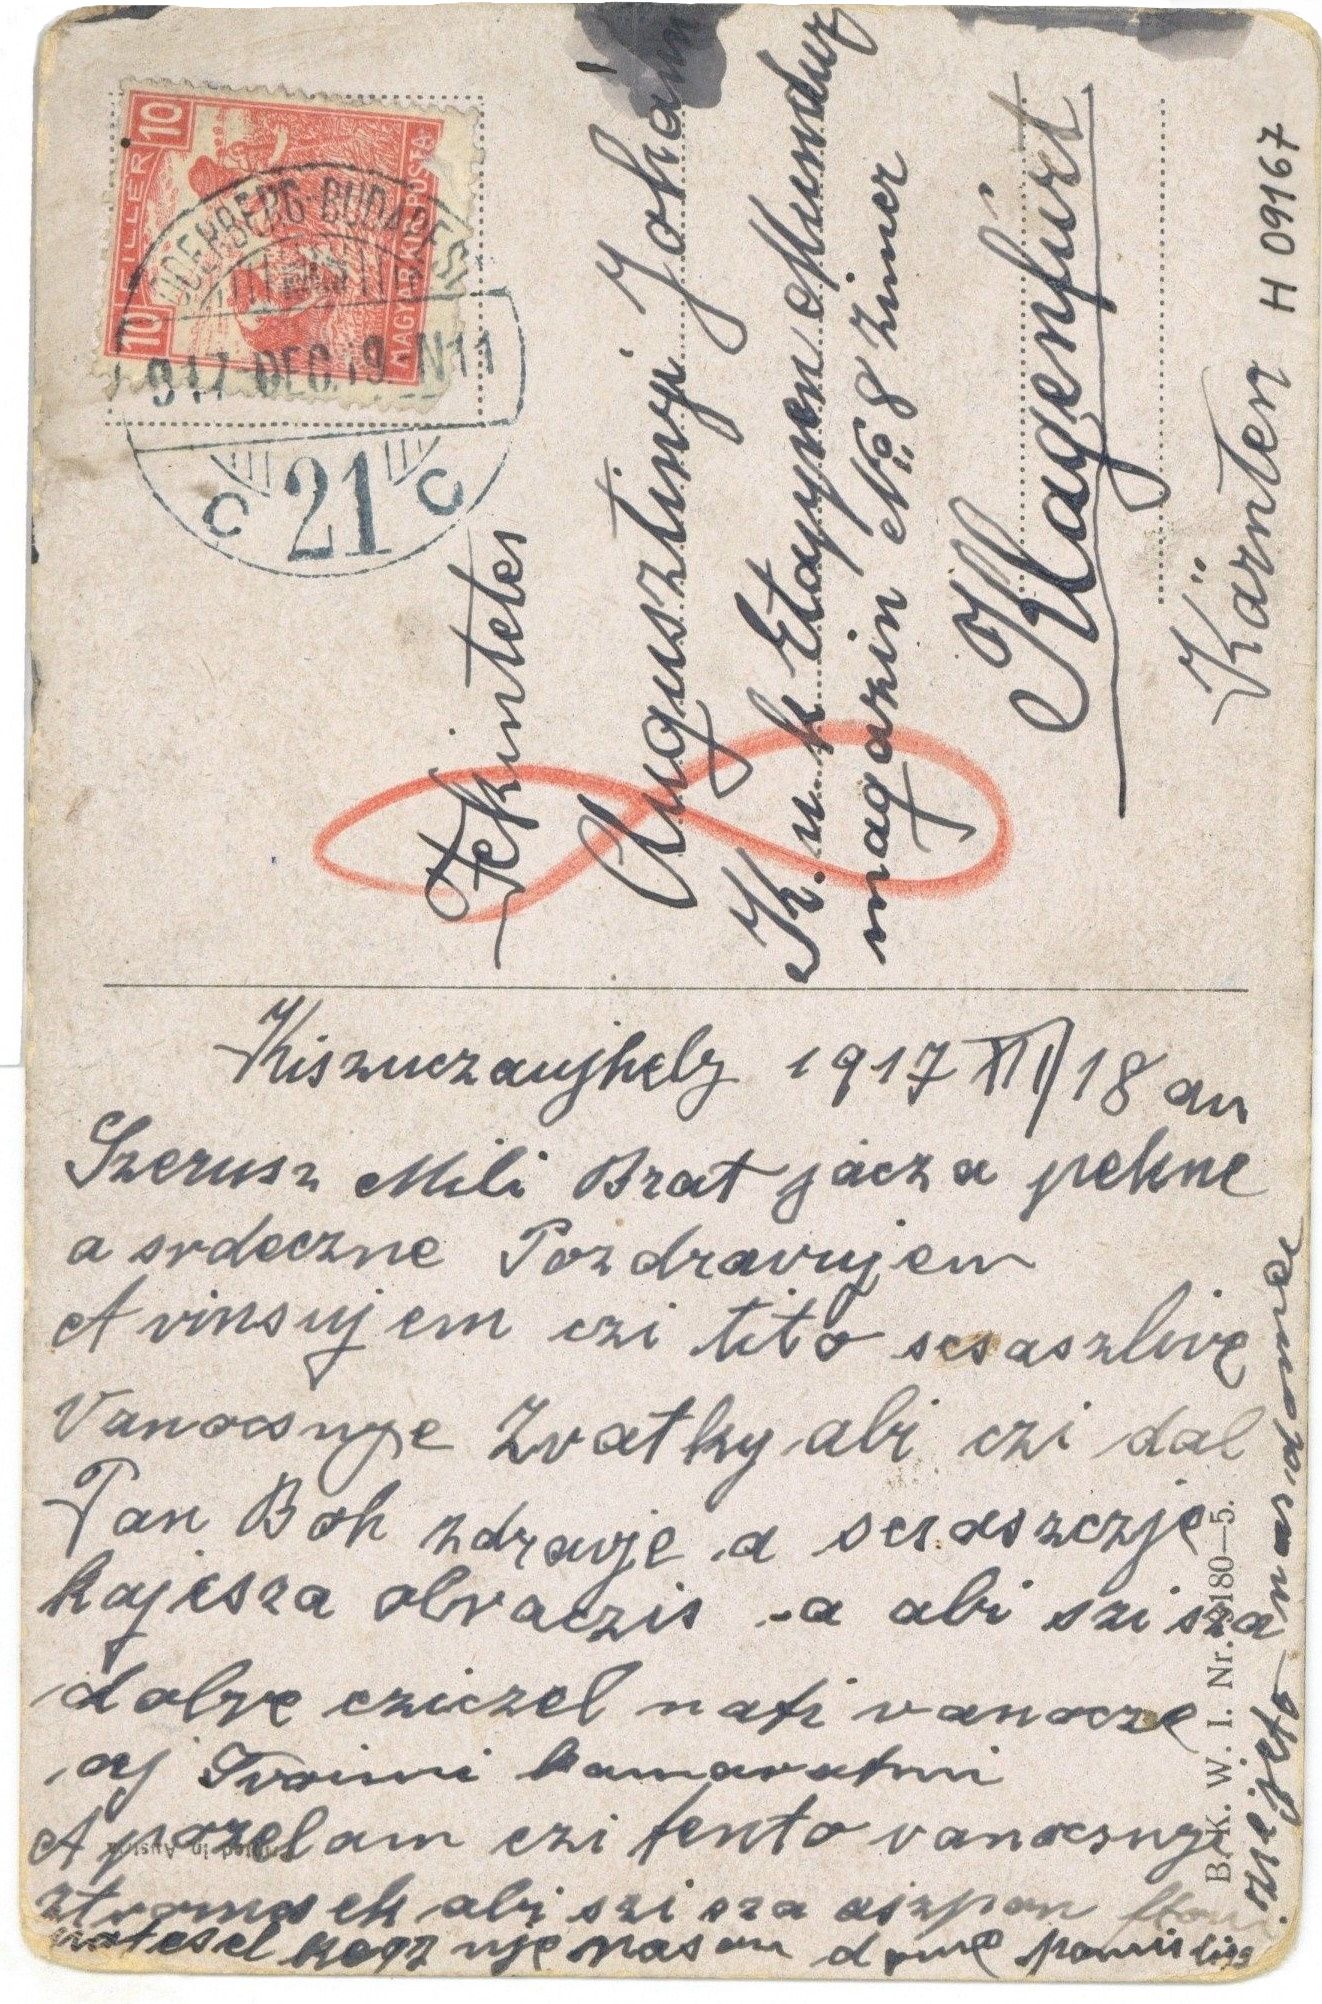 10 FILLÉR 10
MAGYAR KIR. POSTA
ODERBERG-BUDAPEST
917 DEC. 19. N11
C 21 C
Tekintetes
Augusztinyi Johan
K.u.k Etappen
magazin No 8 Zimer
Klagenfurt
Kärnten
H 09167
Kiszuczaujhely 1917 XII/18 an
Szerusz Mili Brat jácza pekne
a srdeczne Pozdravujem
A vinsujem czi tito scsaszlive
Vanocsnye Zvatky abi czi dal
Pan Boh zdravje a scsaszczje
kajesza obvaczis a abi szi sza
dobre czíczel nati vanocze
aj Tvoimi kamaratmi
A pozelam czi tento vanoczny
ztromcsek abi szi sza aszpon
kecz nye nasom dome
nye je to
B. K. W. I. Nr. 180—5.
Printed in Austria